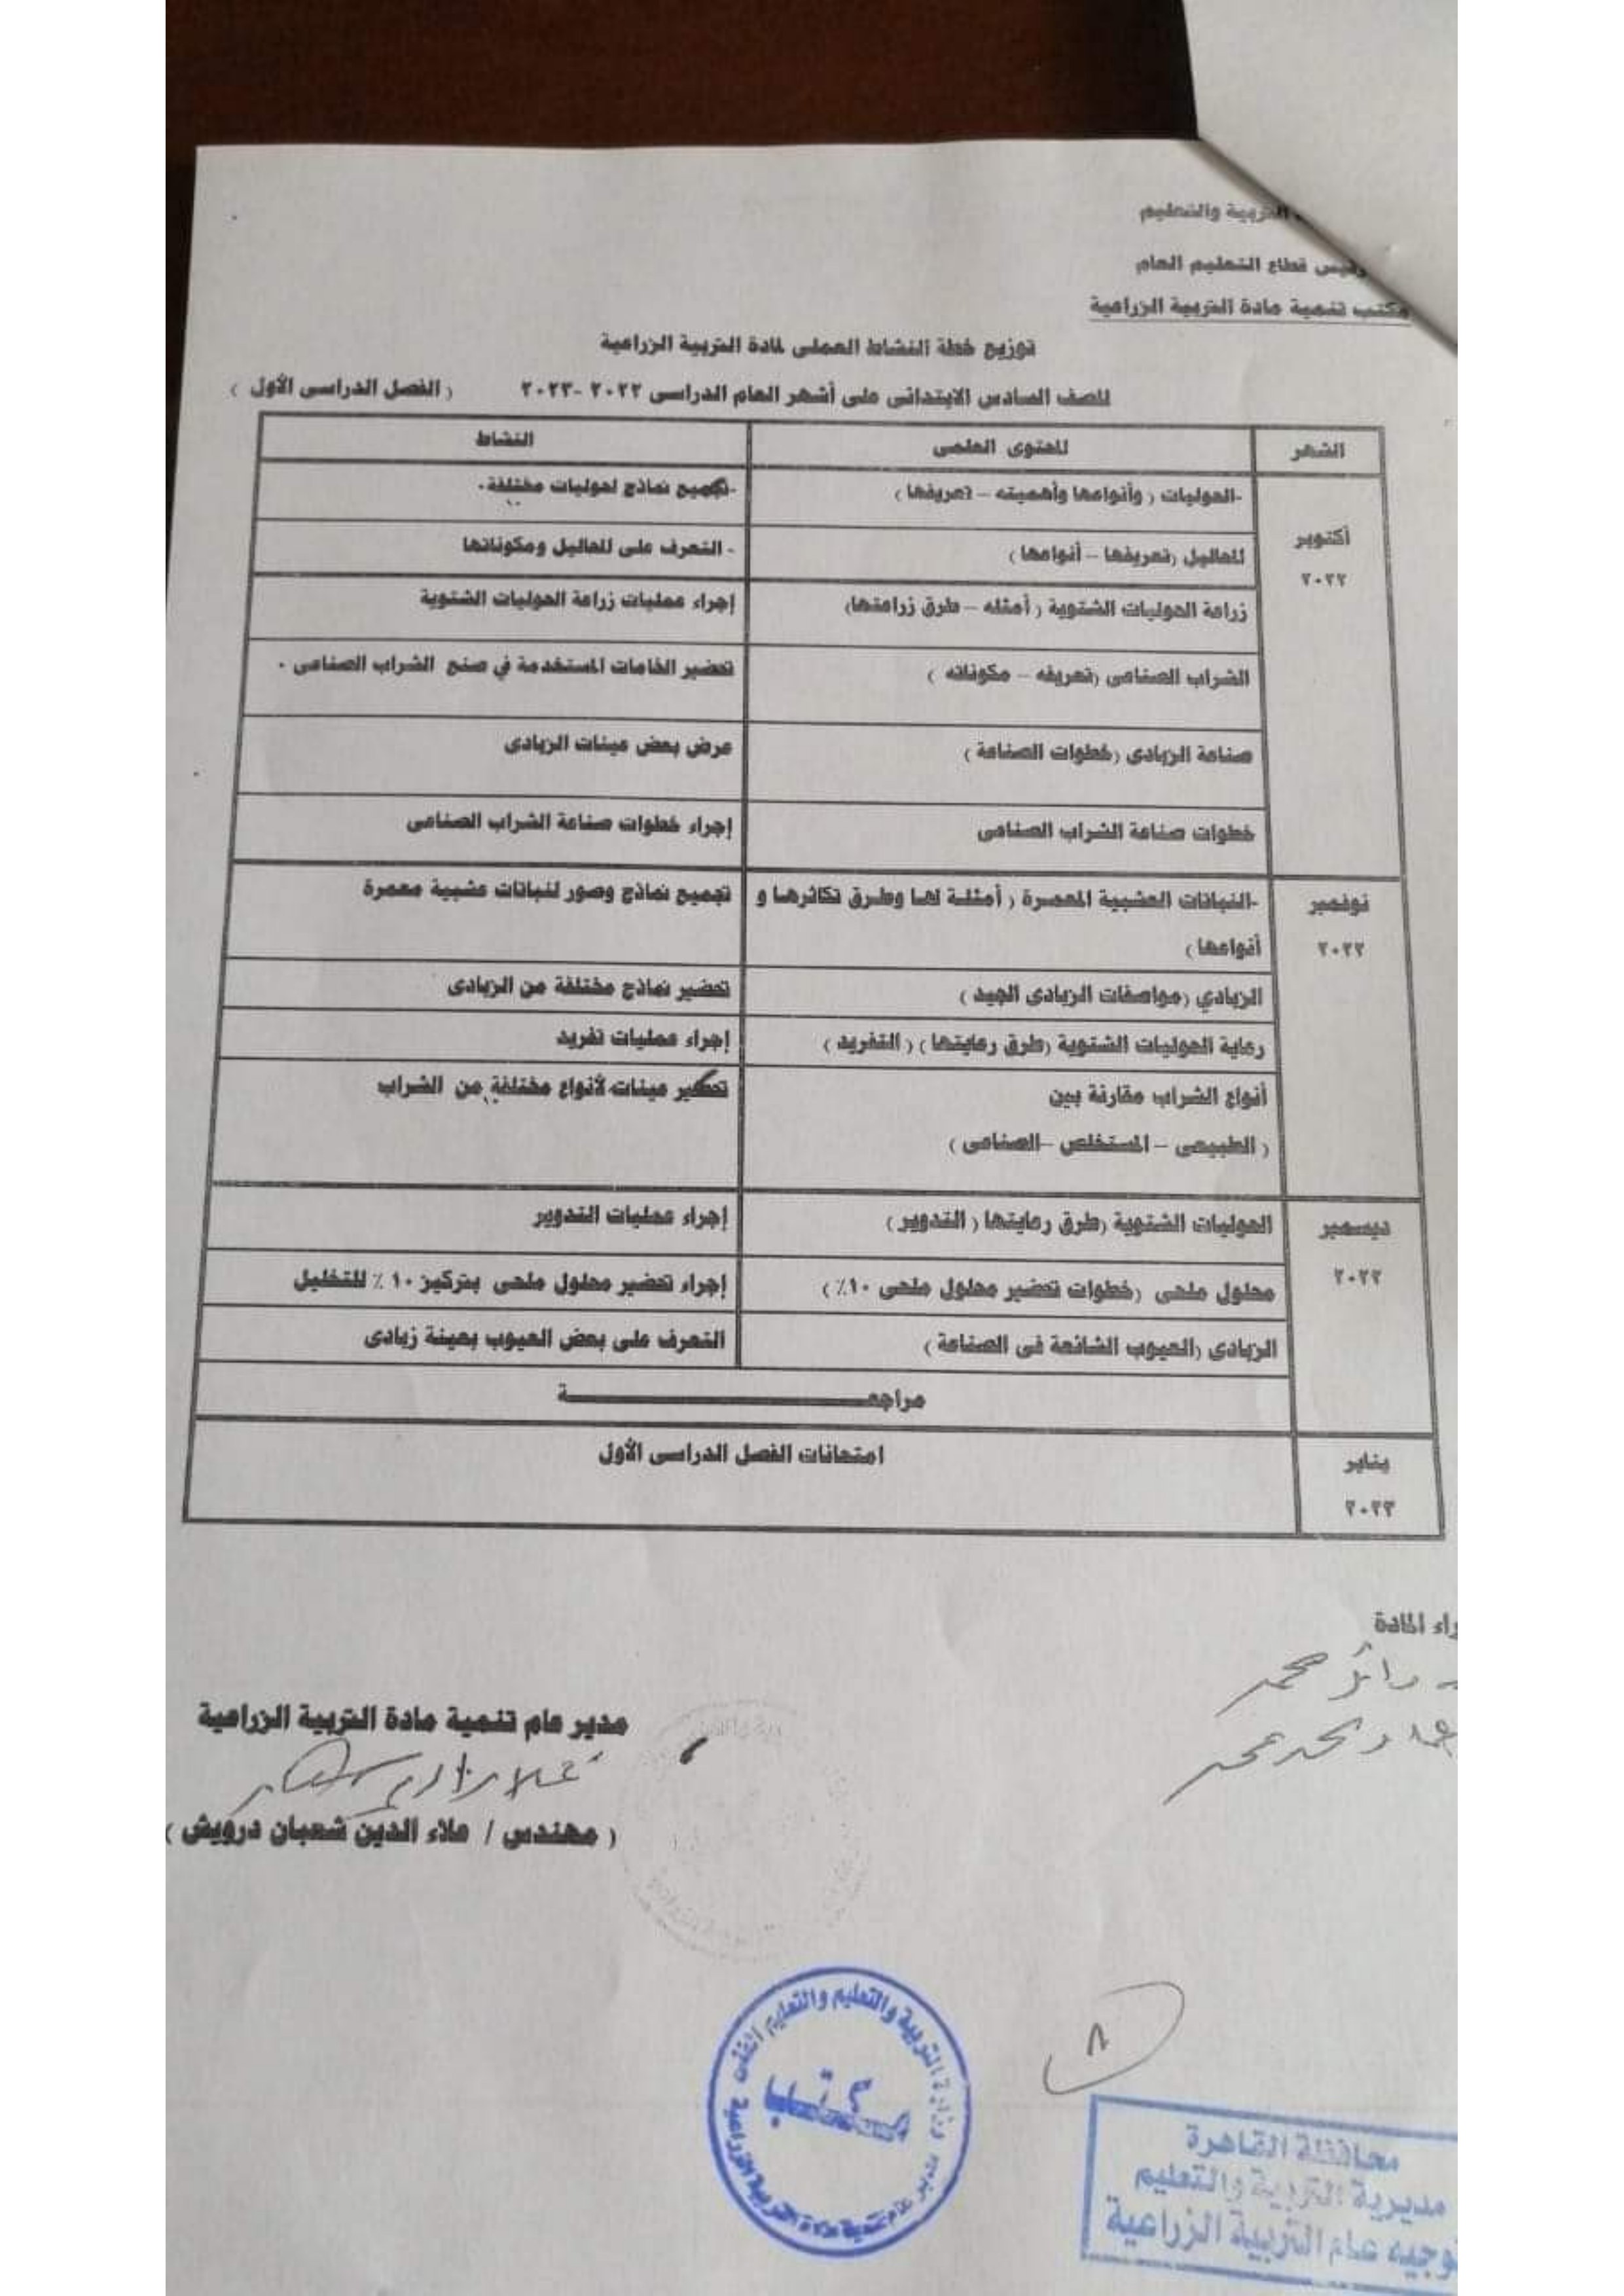 التربية والتعليم
رئيس قطاع التعليم العام
مكتب تنمية مادة التربية الزراعية
توزيع خطة النشاط العملى لمادة التربية الزراعية
للصف السادس الابتدائى على أشهر العام الدراسى ٢٠٢٢ -٢٠٢٣ ( الفصل الدراسى الأول )
الشهر المحتوى العلمى النشاط
أكتوبر
٢٠٢٢
-الحوليات ( وأنواعها وأهميته – تعريفها ) -تجميع نماذج لحوليات مختلفة.
المحاليل (تعريفها – أنواعها ) - التعرف على المحاليل ومكوناتها
زراعة الحوليات الشتوية ( أمثله – طرق زراعتها) إجراء عمليات زراعة الحوليات الشتوية
الشراب الصناعى (تعريفه – مكوناته ) تحضير الخامات المستخدمة في صنع الشراب الصناعى .
صناعة الزبادى (خطوات الصناعة ) عرض بعض عينات الزبادى
خطوات صناعة الشراب الصناعى إجراء خطوات صناعة الشراب الصناعى
نوفمبر
٢٠٢٢
-النباتات العشبية المعمرة ( أمثلة لها وطرق تكاثرها و تجميع نماذج وصور لنباتات عشبية معمرة
أنواعها )
الزبادي (مواصفات الزبادى الجيد ) تحضير نماذج مختلفة من الزبادى
رعاية الحوليات الشتوية (طرق رعايتها ) ( التفريد ) إجراء عمليات تفريد
أنواع الشراب مقارنة بين تحضير عينات لأنواع مختلفة من الشراب
( الطبيعى – المستخلص –الصناعى )
ديسمبر
٢٠٢٢
الحوليات الشتوية (طرق رعايتها ( التدوير ) إجراء عمليات التدوير
محلول ملحى (خطوات تحضير محلول ملحى ١٠٪ ) إجراء تحضير محلول ملحى بتركيز ١٠ ٪ للتخليل
الزبادى (العيوب الشائعة فى الصناعة ) التعرف على بعض العيوب بعينة زبادى
مراجعـــــــــــــــة
يناير
٢٠٢٣
امتحانات الفصل الدراسى الأول
المادة
محمد
محمد
مدير عام تنمية مادة التربية الزراعية
( مهندس / علاء الدين شعبان درويش )
وزارة التربية والتعليم والتعليم الفنى
مكتب
مدير عام تنمية مادة التربية الزراعية
٨
محافظة القاهرة
مديرية التربية والتعليم
توجيه عام التربية الزراعية